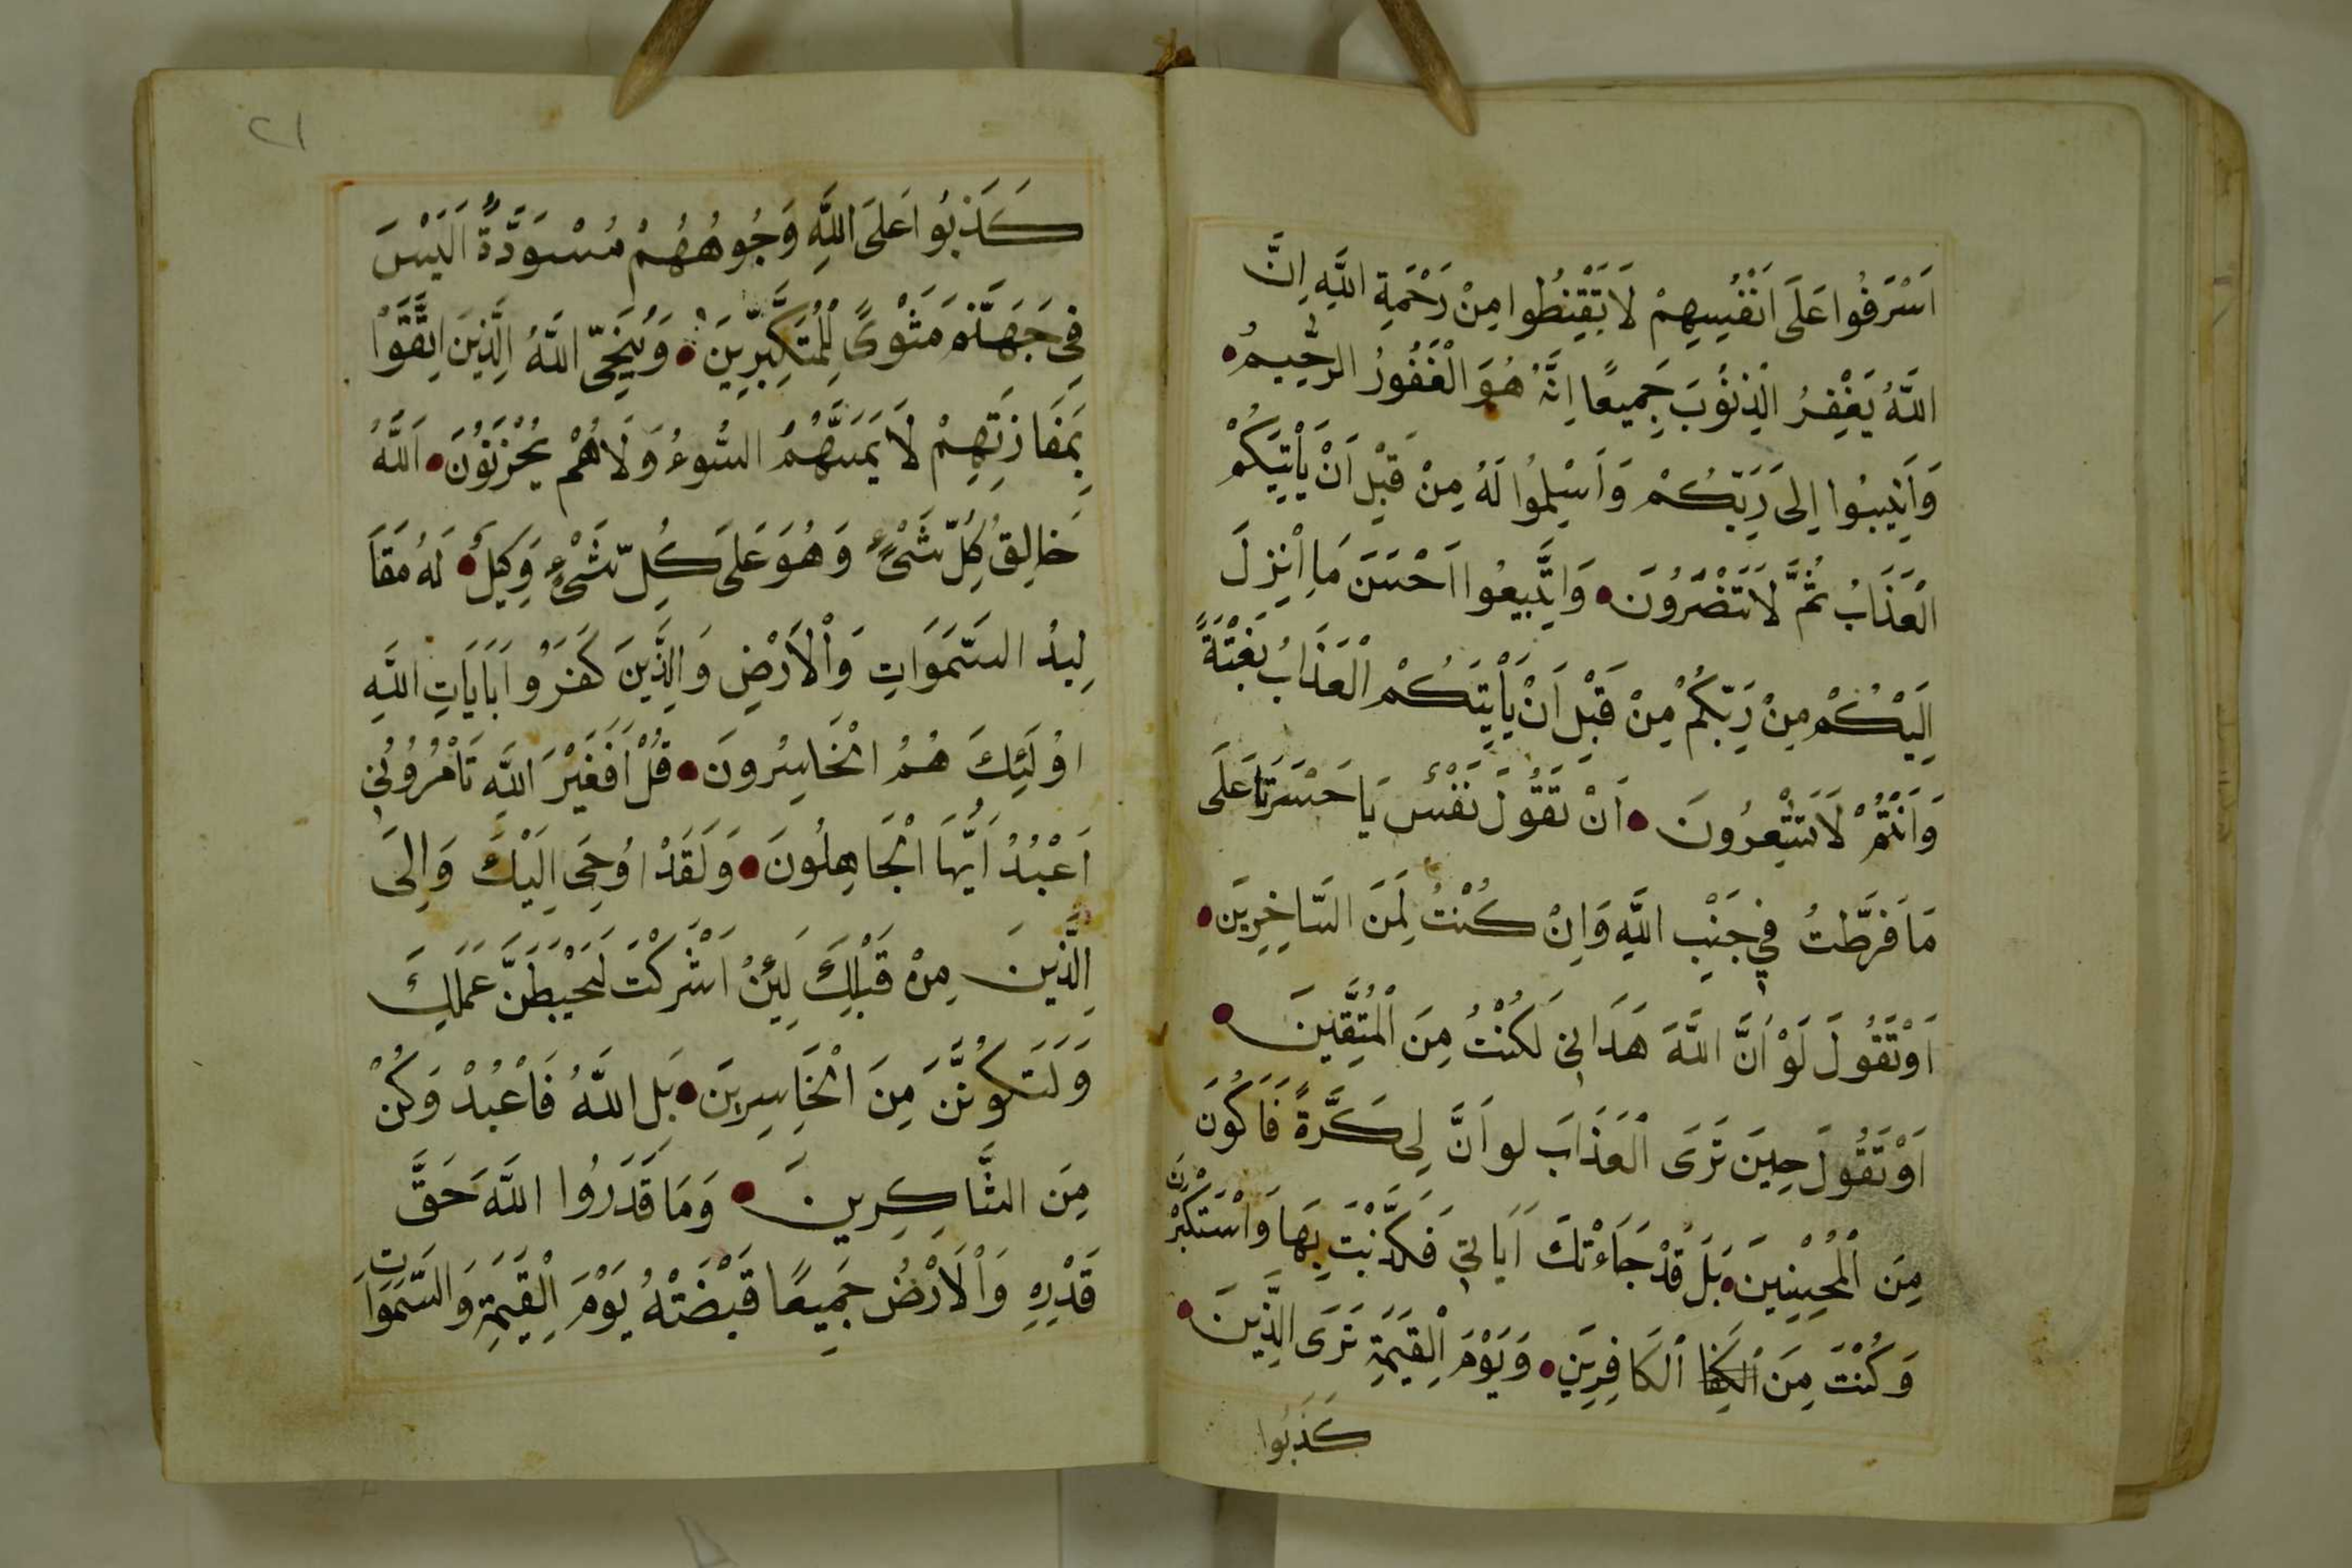 اَسْرَفُوا عَلَى اَنْفُسِهِمْ لَا تَقْنِطُوا مِنْ رَحْمَةِ اللَّهِ اِنَّ
اللَّهَ يَغْفِرُ الذُّنُوبَ جَمِيعًا اِنَّهُ هُوَ الْغَفُورُ الرَّحِيمُ
وَاَنِيبُوا اِلَى رَبِّكُمْ وَاَسْلِمُوا لَهُ مِنْ قَبْلِ اَنْ يَأْتِيَكُمْ
الْعَذَابُ ثُمَّ لَا تَنْصَرُونَ وَاتَّبِعُوا اَحْسَنَ مَا اُنْزِلَ
اِلَيْكُمْ مِنْ رَبِّكُمْ مِنْ قَبْلِ اَنْ يَأْتِيَكُمُ الْعَذَابُ بَغْتَةً
وَاَنْتُمْ لَا تَشْعُرُونَ اَنْ تَقُولَ نَفْسٌ يَا حَسْرَتَا عَلَى
مَا فَرَّطْتُ فِي جَنْبِ اللَّهِ وَاِنْ كُنْتُ لَمِنَ السَّاخِرِينَ
اَوْ تَقُولَ لَوْ اَنَّ اللَّهَ هَدَانِي لَكُنْتُ مِنَ الْمُتَّقِينَ
اَوْ تَقُولَ حِينَ تَرَى الْعَذَابَ لو اَنَّ لِي كَرَّةً فَاَكُونَ
مِنَ الْمُحْسِنِينَ بَلَى قَدْ جَاءَتْكَ اَيَاتِي فَكَذَّبْتَ بِهَا وَاسْتَكْبَرْتَ
وَكُنْتَ مِنَ الْكَافِرِينَ وَيَوْمَ الْقِيَمَةِ تَرَى الَّذِينَ
كَذَبُوا
٢١
كَذَبُوا عَلَى اللَّهِ وُجُوهُهُمْ مُسْوَدَّةٌ اَلَيْسَ
فِي جَهَنَّمَ مَثْوًى لِلْمُتَكَبِّرِينَ وَيُنَجِّي اللَّهُ الَّذِينَ اتَّقَوْا
بِمَفَازَتِهِمْ لَا يَمَسُّهُمُ السُّوءُ وَلَا هُمْ يُحْزَنُونَ اَللَّهُ
خَالِقُ كُلِّ شَيْءٍ وَهُوَ عَلَى كُلِّ شَيْءٍ وَكِيلٌ لَهُ مَقَا
لِيدُ السَّمَوَاتِ وَالْاَرْضِ وَالَّذِينَ كَفَرُوا بَايَاتِ اللَّهِ
اُولَئِكَ هُمُ الْخَاسِرُونَ قُلْ اَفَغَيْرَ اللَّهِ تَأْمُرُونِي
اَعْبُدُ اَيُّهَا الْجَاهِلُونَ وَلَقَدْ اُوحِيَ اِلَيْكَ وَاِلَى
الَّذِينَ مِنْ قَبْلِكَ لَئِنْ اَشْرَكْتَ لَيَحْبَطَنَّ عَمَلُكَ
وَلَتَكُونَنَّ مِنَ الْخَاسِرِينَ بَلِ اللَّهَ فَاعْبُدْ وَكُنْ
مِنَ الشَّاكِرِينَ وَمَا قَدَرُوا اللَّهَ حَقَّ
قَدْرِهِ وَالْاَرْضُ جَمِيعًا قَبْضَتُهُ يَوْمَ الْقِيَمَةِ وَالسَّمَوَاتُ